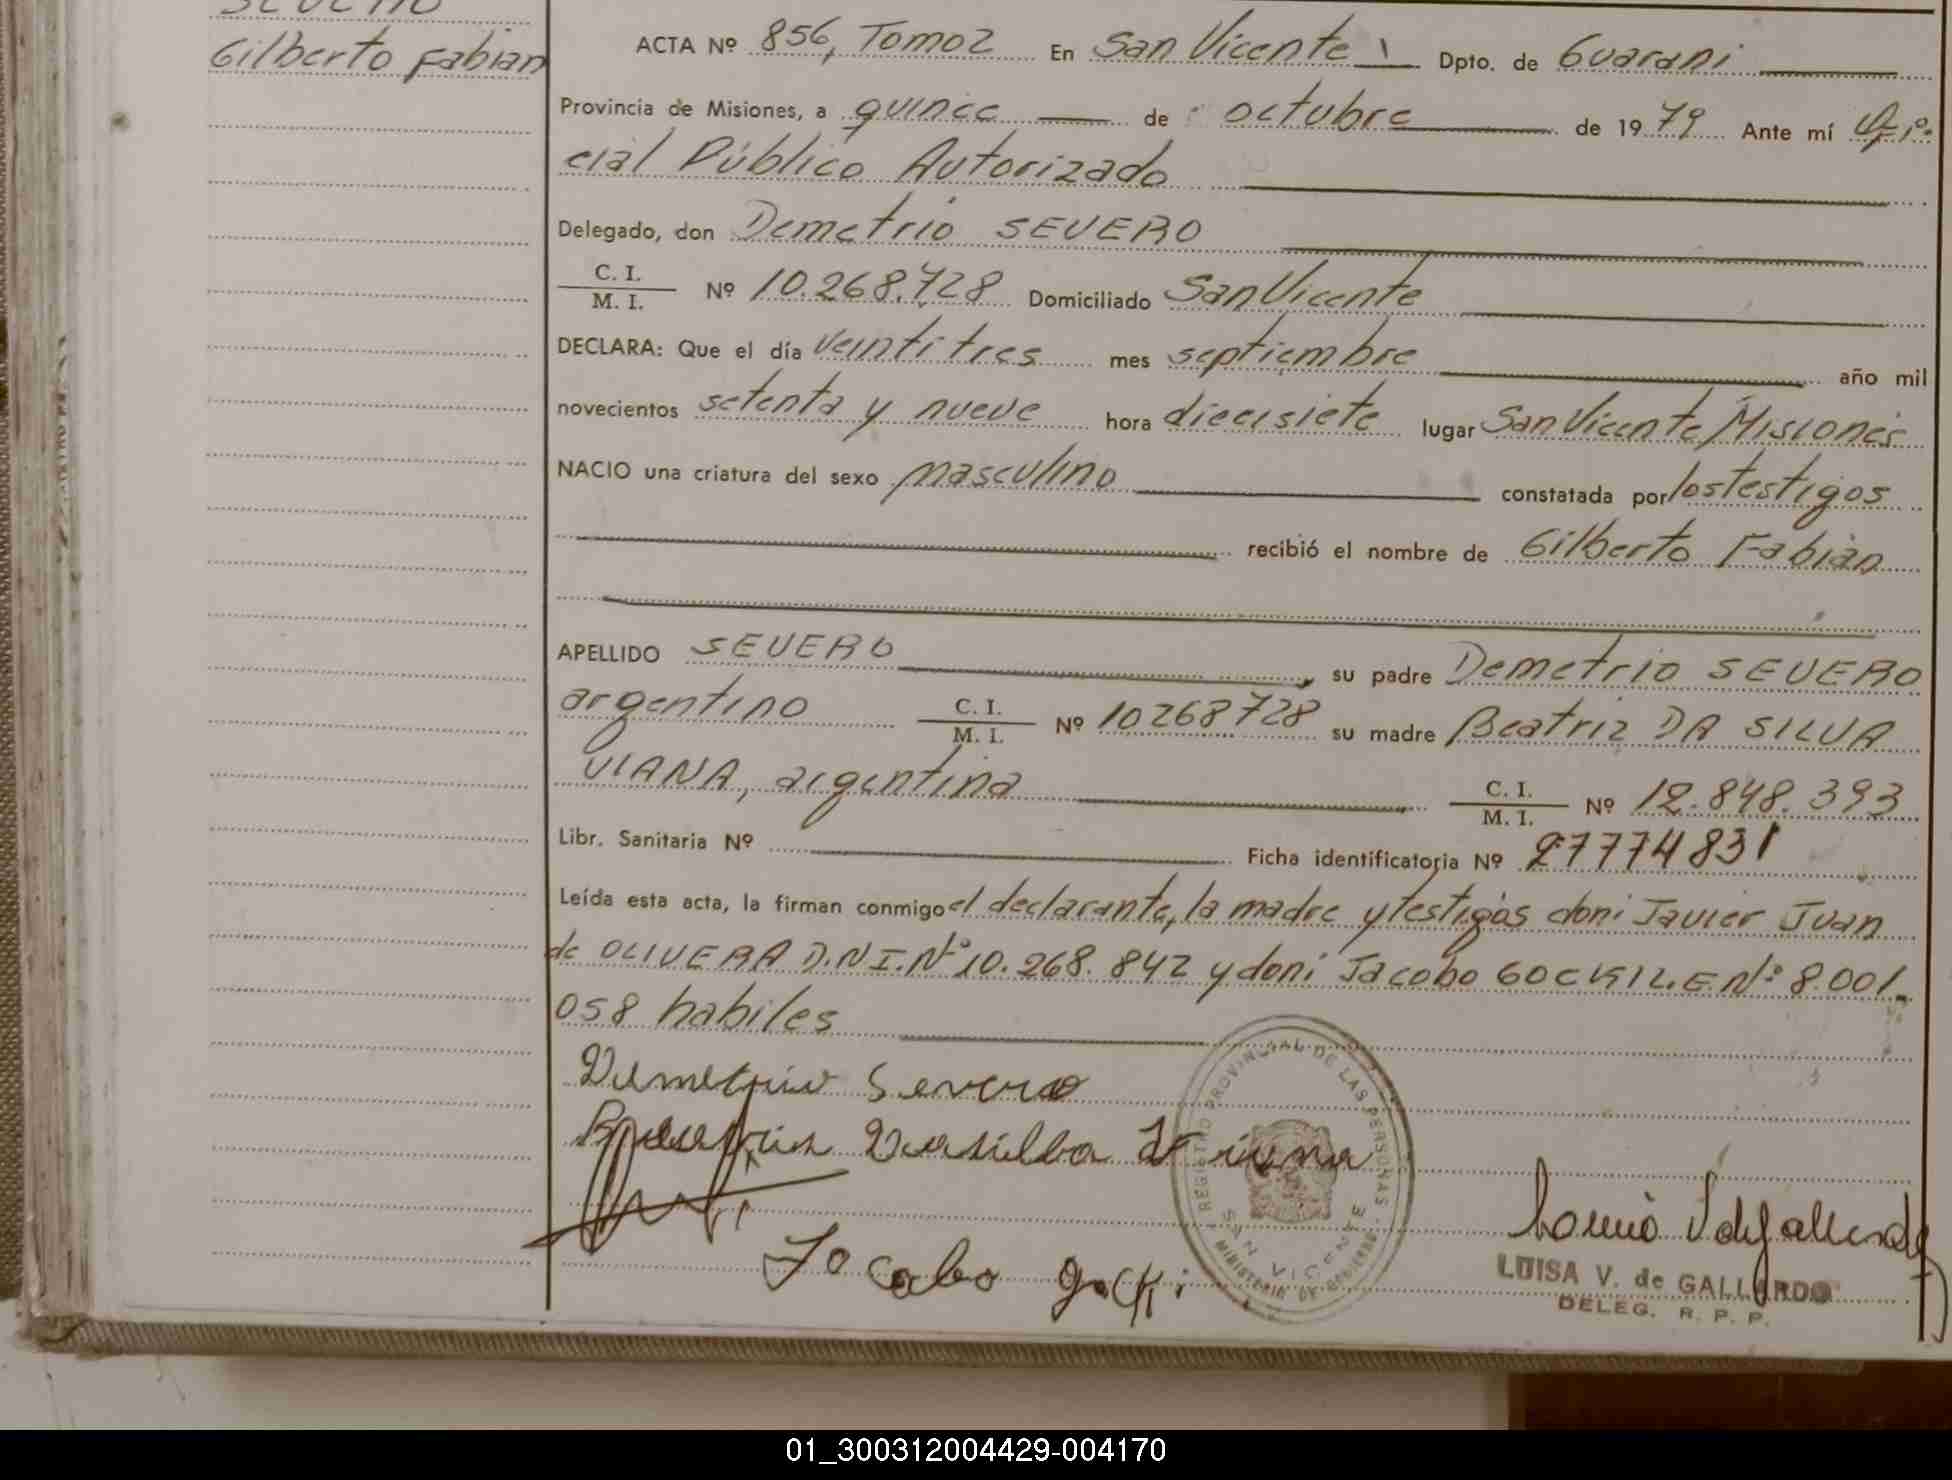 SEVERO
Gilberto Fabian
ACTA Nº 856, Tomo 2 En San Vicente Dpto. de Guarani
Provincia de Misiones, a quince de octubre de 1979 Ante mí Ofi-
cial Público Autorizado
Delegado, don Demetrio SEVERO
C. I.
M. I. Nº 10.268.728 Domiciliado San Vicente
DECLARA: Que el día veintitres mes septiembre año mil
novecientos setenta y nueve hora diecisiete lugar San Vicente, Misiones
NACIO una criatura del sexo masculino constatada por los testigos
recibió el nombre de Gilberto Fabián
APELLIDO SEVERO su padre Demetrio SEVERO
argentino C. I.
M. I. Nº 10268728 su madre Beatriz DA SILVA
VIANA, argentina C. I.
M. I. Nº 12.848.393
Libr. Sanitaria Nº Ficha identificatoria Nº 27774831
Leída esta acta, la firman conmigo el declarante, la madre y testigos don: Javier Juan
de OLIVERA D.N.I. Nº 10.268.842 y don: Jacobo GOCKI L.E. Nº: 8.001.
058 habiles
Demetrio Severo
Jacobo Gocki
REGISTRO PROVINCIAL DE LAS PERSONAS
SAN VICENTE
MINISTERIO DE GOBIERNO
LUISA V. de GALLARDO
DELEG. R. P. P.
01_300312004429-004170